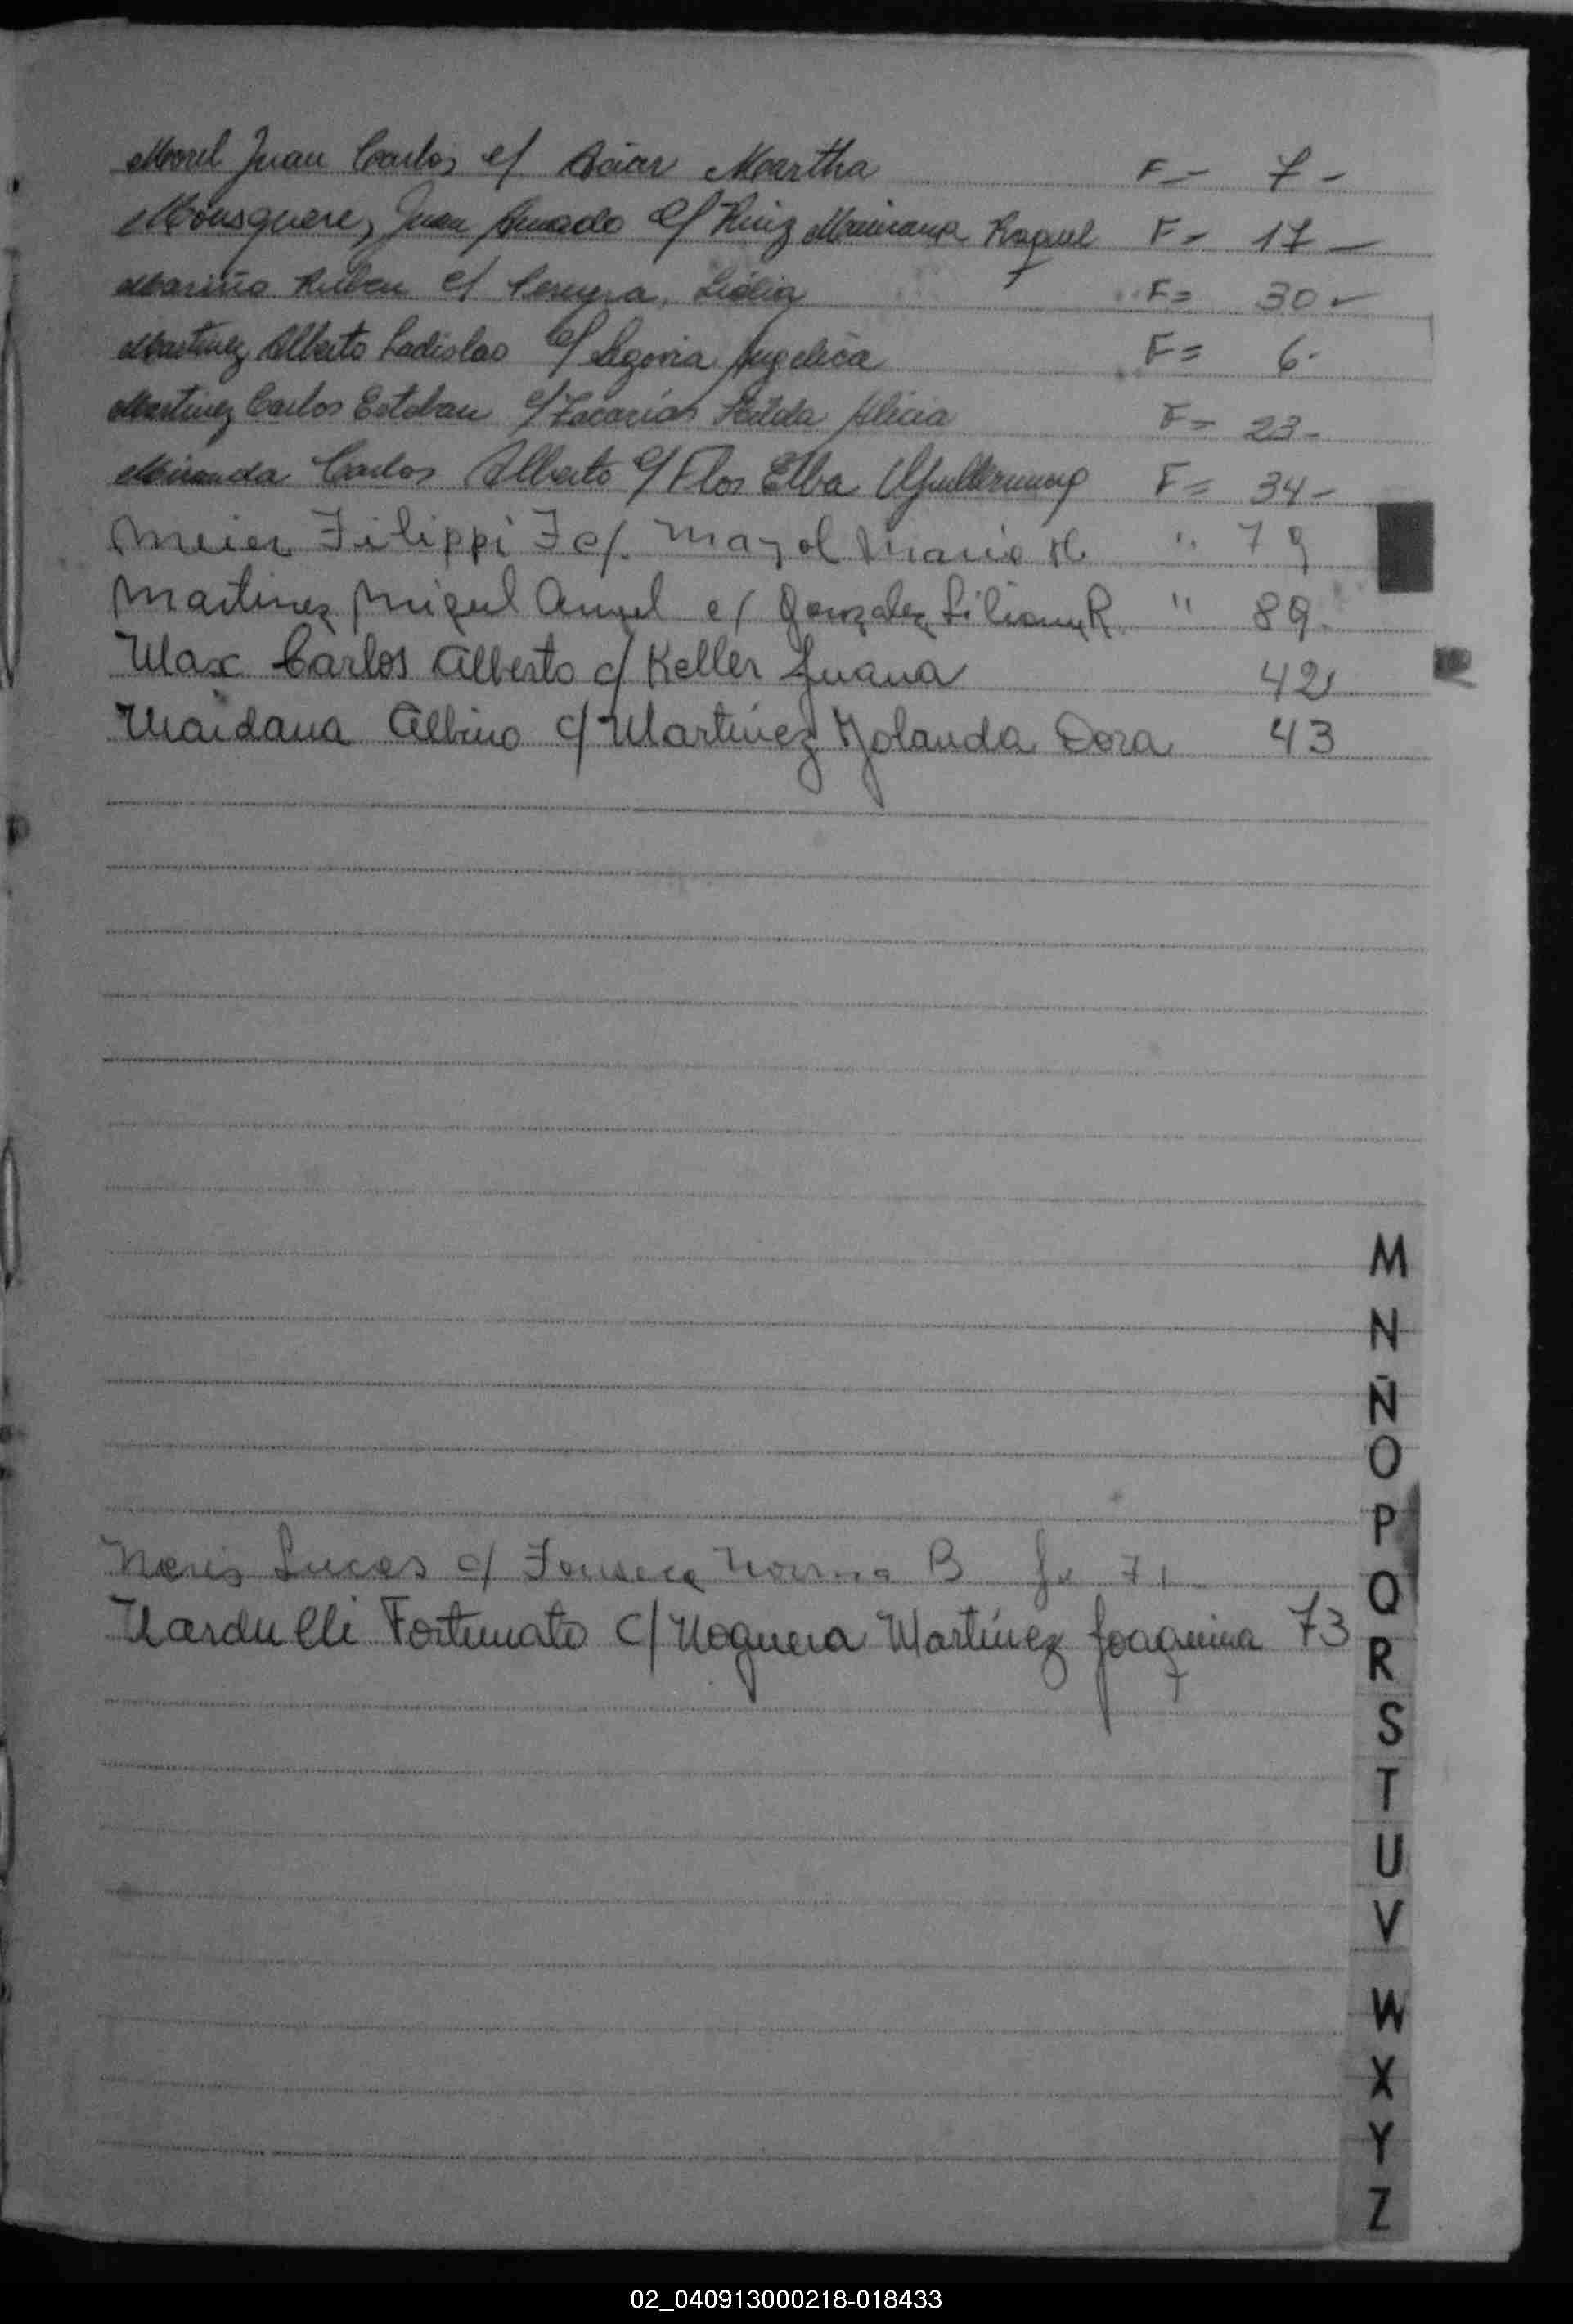 Morel Juan Carlos c/ Aciar Martha F= 7-
Mousquere, Juan Amado c/ Ruiz Raquel F= 17-
Mariño Ruben c/ Pereyra, Lidia F= 30-
Martinez Alberto Ladislao c/ Segovia Angelica F= 6-
Martinez Carlos Esteban c/ Zacarias Hilda Alicia F= 23-
Miranda Carlos Alberto c/ Flos Elba Guillermina F= 34-
Meier Filippi F c/. Mayol Maria H. " 79
Martinez Miguel Angel c/ Gonzalez Liliana R. " 89.
Max Carlos Alberto c/ Keller Juana 42
Maidana Albino c/ Martínez Yolanda Dora 43
M
N
Ñ
O
P
Neris Lucas c/ Fonseca Norma B fs 71
Q
Nardulli Fortunato c/ Noguera Martínez Joaquina 73
R
S
T
U
V
W
X
Y
Z
02_040913000218-018433